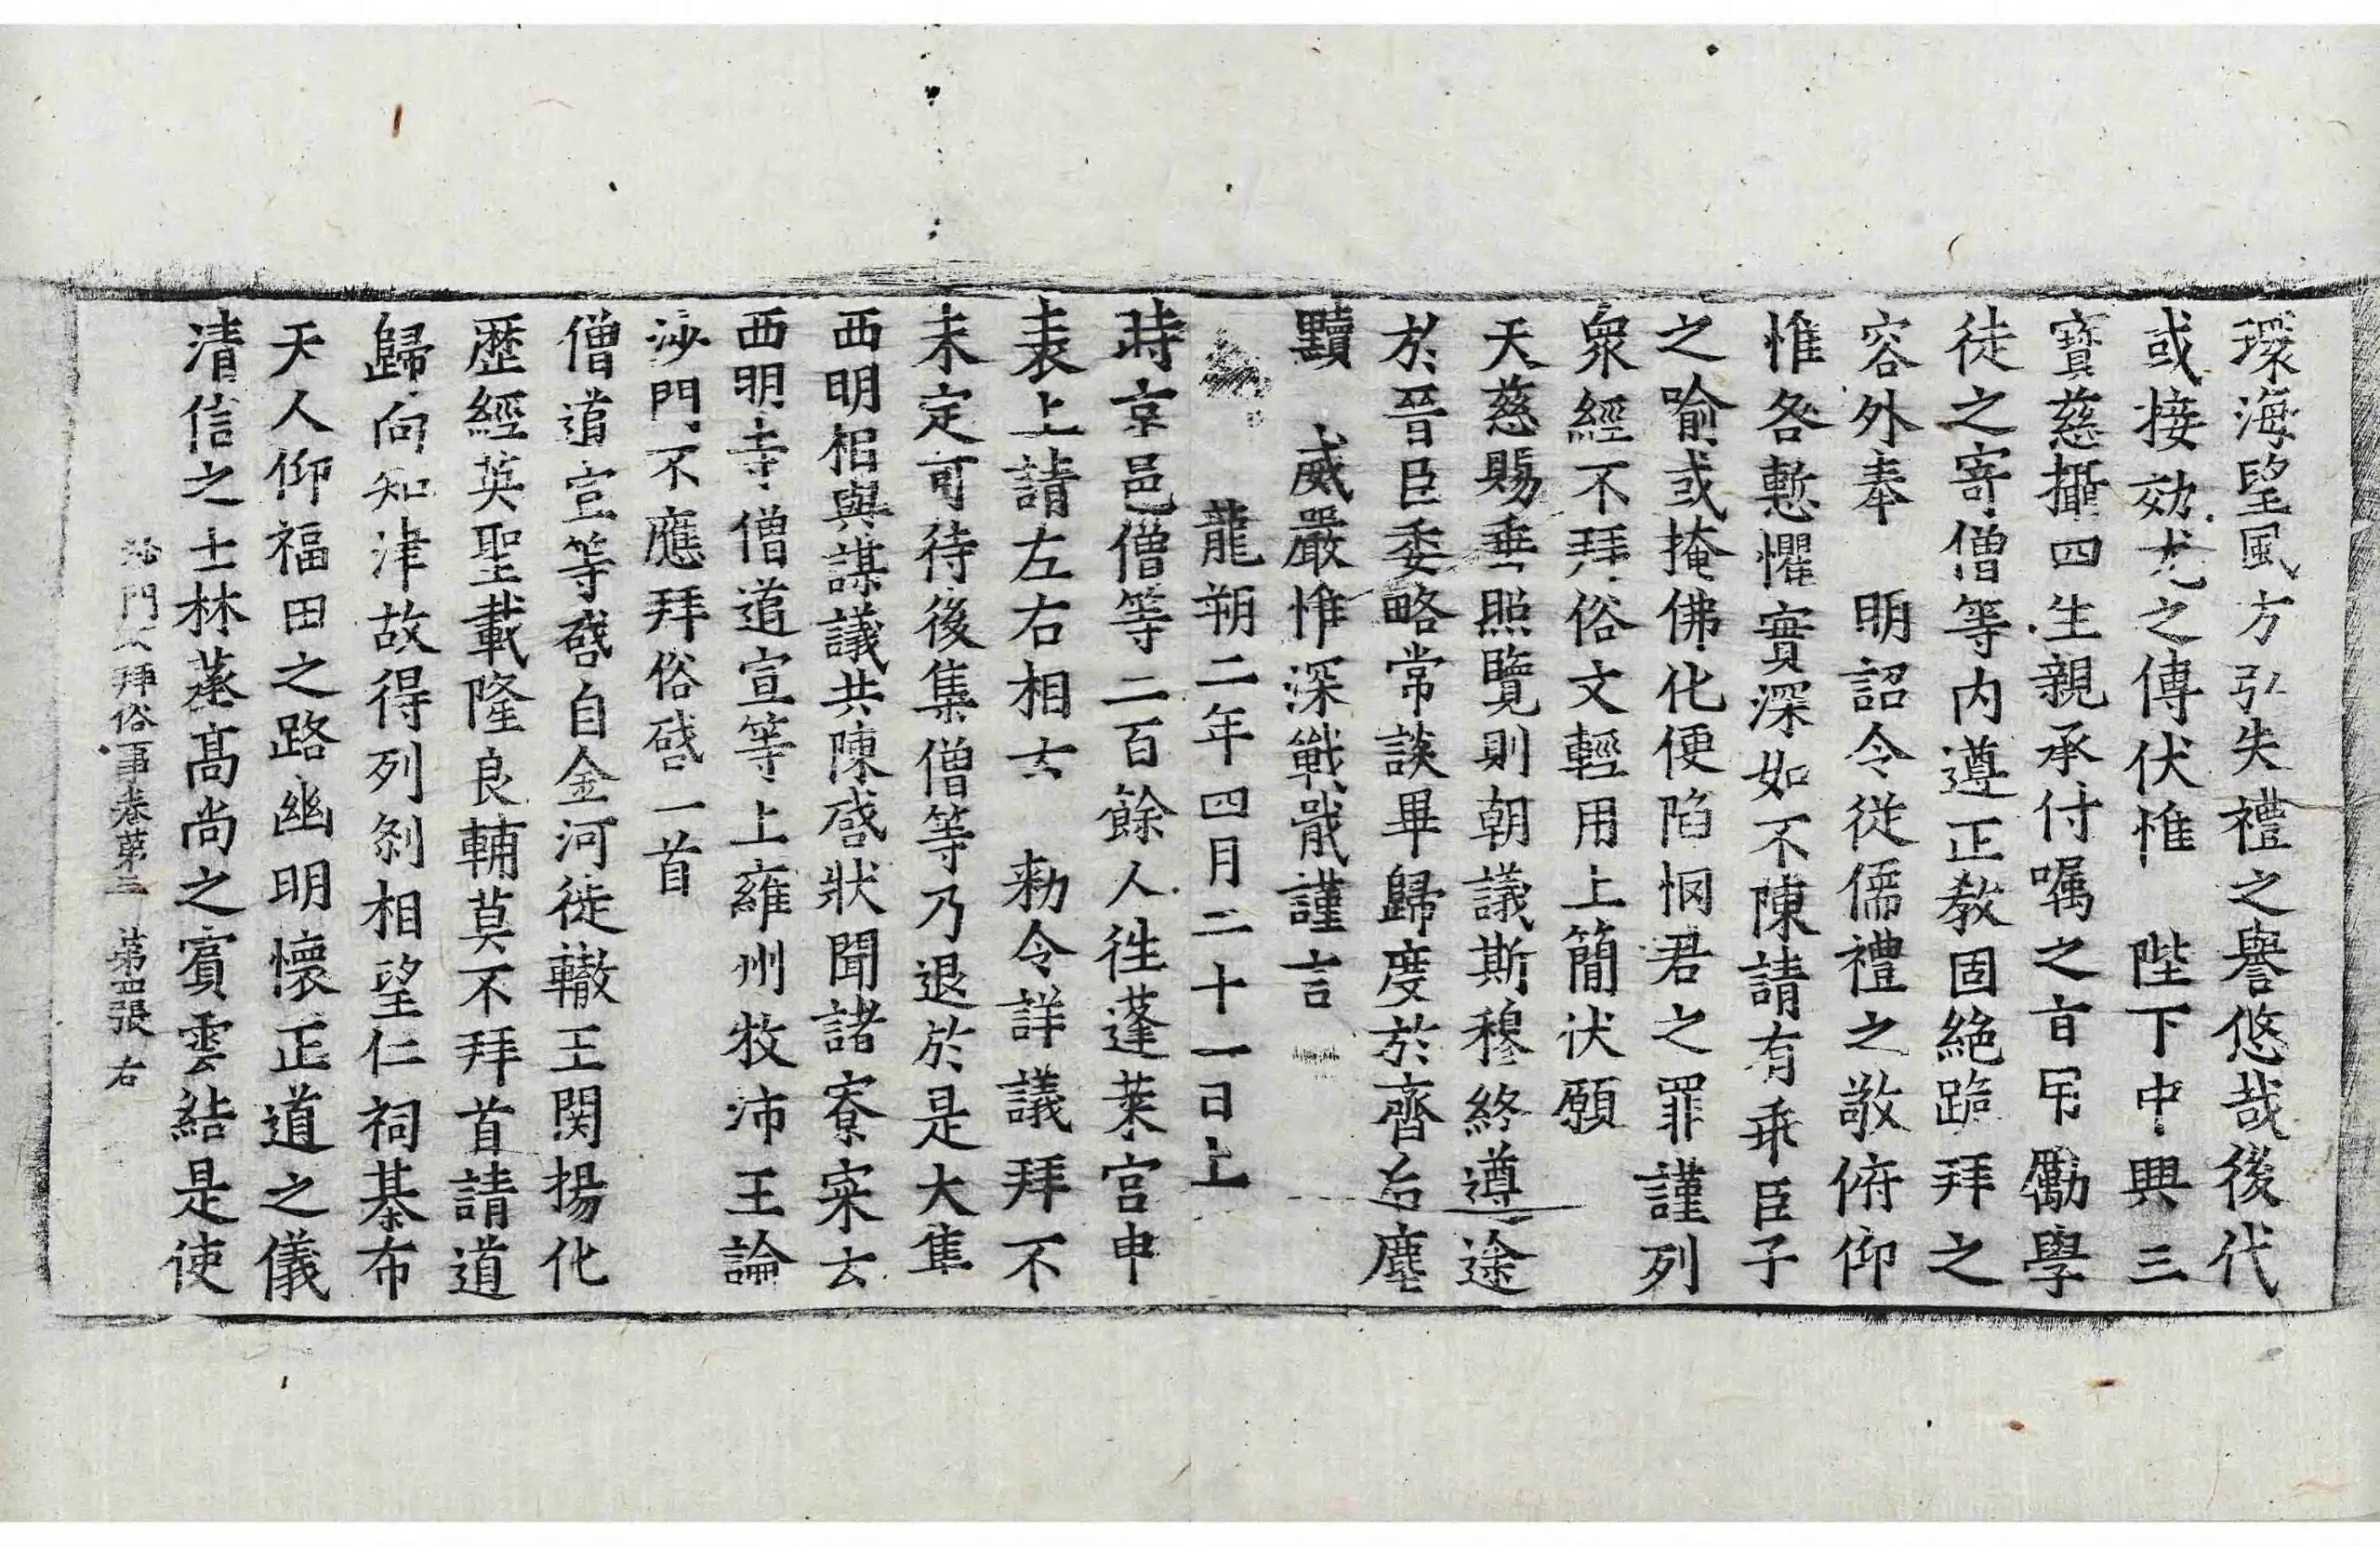 環海望風方弘失禮之譽悠哉後代
或接効尤之傳伏惟　陛下中興三
寶慈攝四生親承付囑之旨用勵學
徒之寄僧等内遵正教固絶跪拜之
容外奉　明詔令従儒禮之敬俯仰
惟咎慙懼實深如不陳請有乖臣子
之喻或掩佛化便陷㒺君之罪謹列
衆經不拜俗文輕用上簡伏願
天慈賜垂照覽則朝議斯穆終遵途
於晉臣委略常談畢歸度於齊台塵
黷　威嚴惟深戰戢謹言
龍朔二年四月二十一日上
時京邑僧等二百餘人徃蓬萊宮申
表上請左右相云　勑令詳議拜不
未定可待後集僧等乃退於是大集
西明相與謀議共陳啓狀聞諸寮寀云
西明寺僧道宣等上雍州牧沛王論
沙門不應拜俗啓一首
僧道宣等啓自金河徙轍玉関揚化
歴經英聖載隆良輔莫不拜首請道
歸向知津故得列刹相望仁祠棊布
天人仰福田之路幽明懷正道之儀
清信之士林蒸髙尚之賔雲結是使
沙門不拜俗事卷苐三　苐四張　右